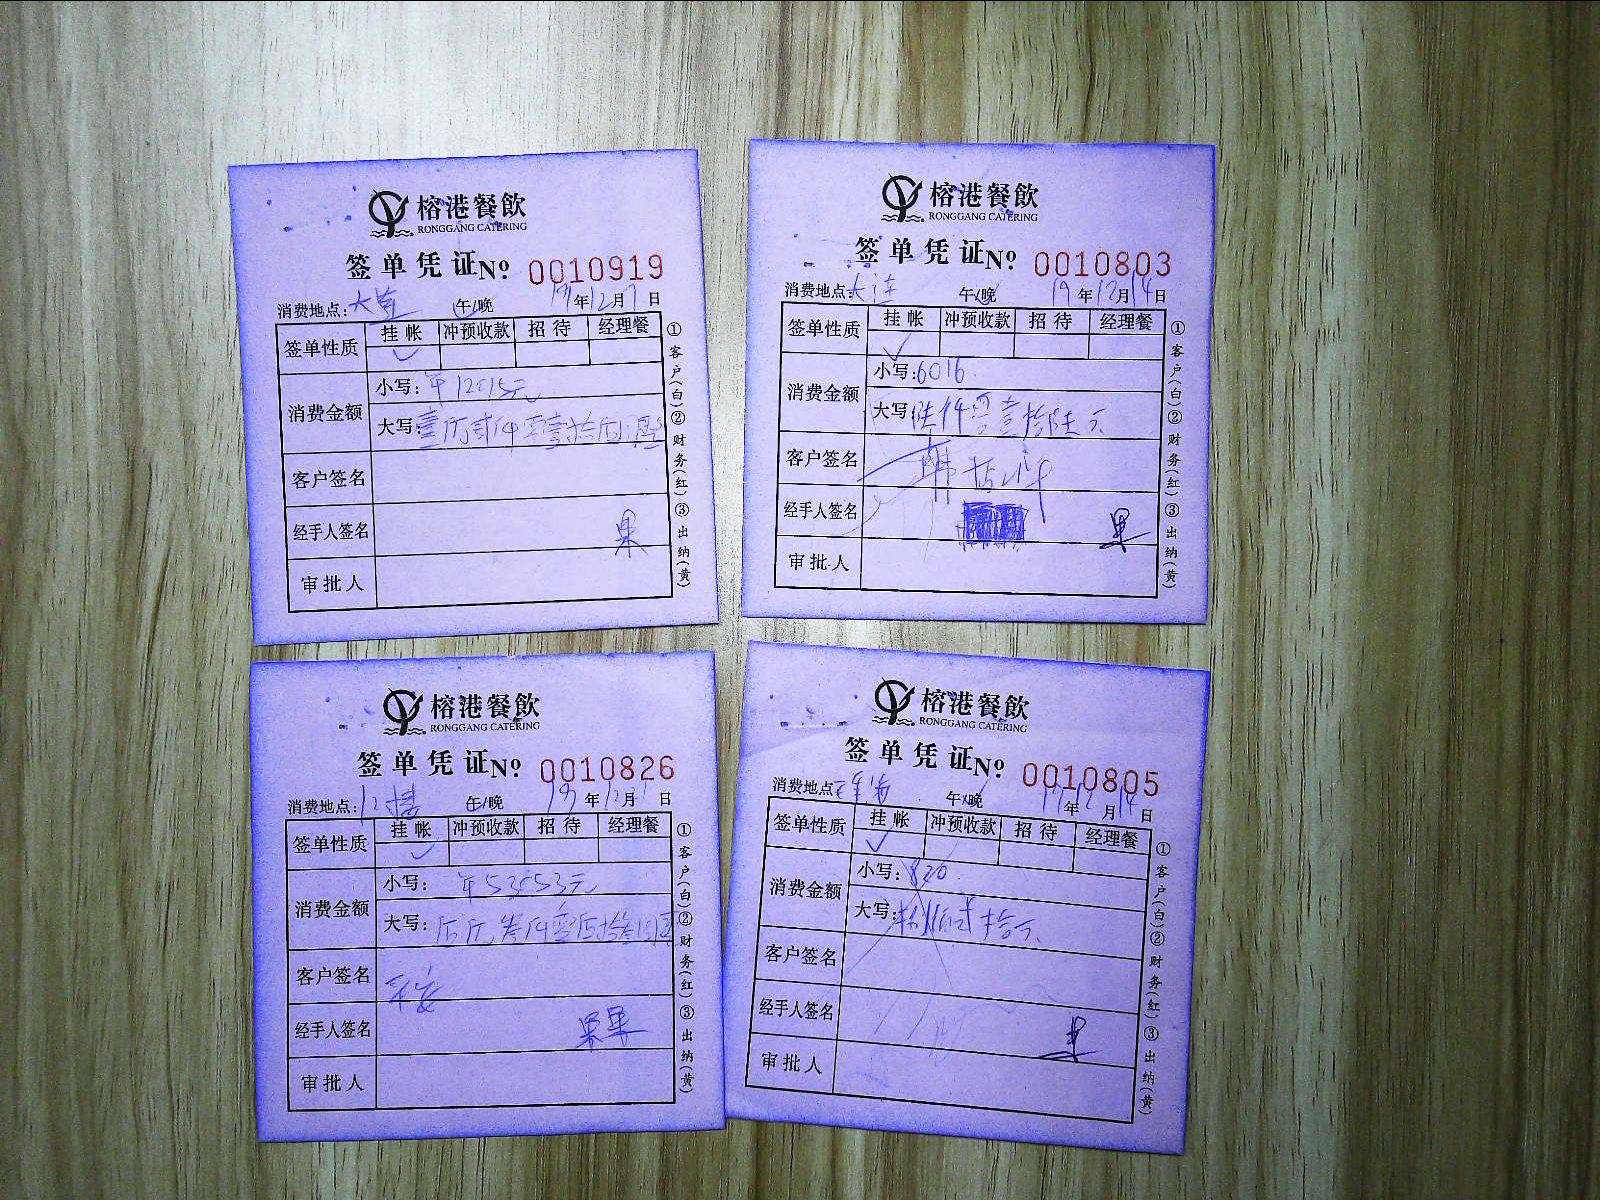 榕港餐飲
RONGGANG CATERING
签单凭证 № 0010919
消费地点: 午/晚 19年12月7日
签单性质 挂帐 冲预收款 招待 经理餐
✓
消费金额 小写: 元
大写:
客户签名
经手人签名 果
审批人
①客户(白)②财务(红)③出纳(黄)
榕港餐飲
RONGGANG CATERING
签单凭证 № 0010803
消费地点: 大连 午/晚 19年12月14日
签单性质 挂帐 冲预收款 招待 经理餐
✓
消费金额 小写: 6016.
大写: 陆仟零壹拾陆元
客户签名
经手人签名 果
审批人
①客户(白)②财务(红)③出纳(黄)
榕港餐飲
RONGGANG CATERING
签单凭证 № 0010826
消费地点: 午/晚 19年12月1日
签单性质 挂帐 冲预收款 招待 经理餐
✓
消费金额 小写: 元
大写:
客户签名
经手人签名 果果
审批人
①客户(白)②财务(红)③出纳(黄)
榕港餐飲
RONGGANG CATERING
签单凭证 № 0010805
消费地点: 午/晚 19年12月14日
签单性质 挂帐 冲预收款 招待 经理餐
✓
消费金额 小写: 820.
大写: 捌佰贰拾元
客户签名
经手人签名 果
审批人
①客户(白)②财务(红)③出纳(黄)